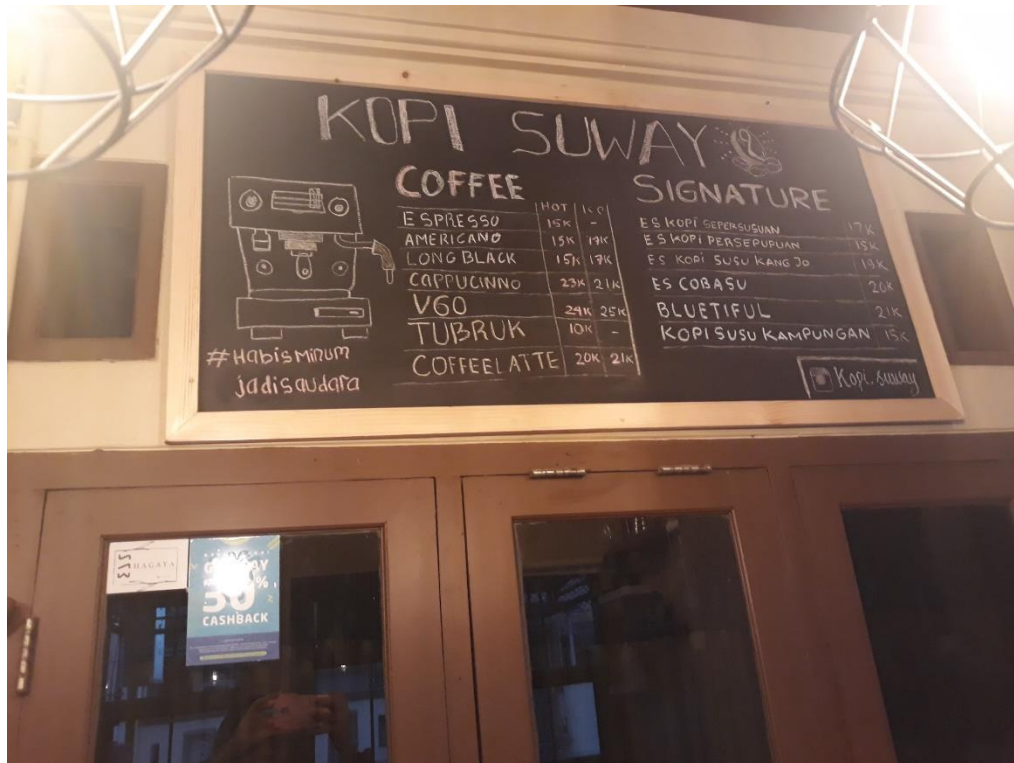 KOPI SUWAY
COFFEE
HOT
ESPRESSO 15K -
AMERICANO 15K 17K
LONG BLACK 15K 17K
CAPPUCINNO 23K 21K
V60 24K 25K
TUBRUK 10K -
COFFEELATTE 20K 21K
#Habisminum
jadisaudara
SIGNATURE
ES KOPI SEPERSUSUAN 17K
ES KOPI PERSEPUPUAN 15K
ES KOPI SUSU KANG JO 19K
ES COBASU 20K
BLUETIFUL 21K
KOPI SUSU KAMPUNGAN 15K
Kopi.suway
HAGAYA
CASHBACK